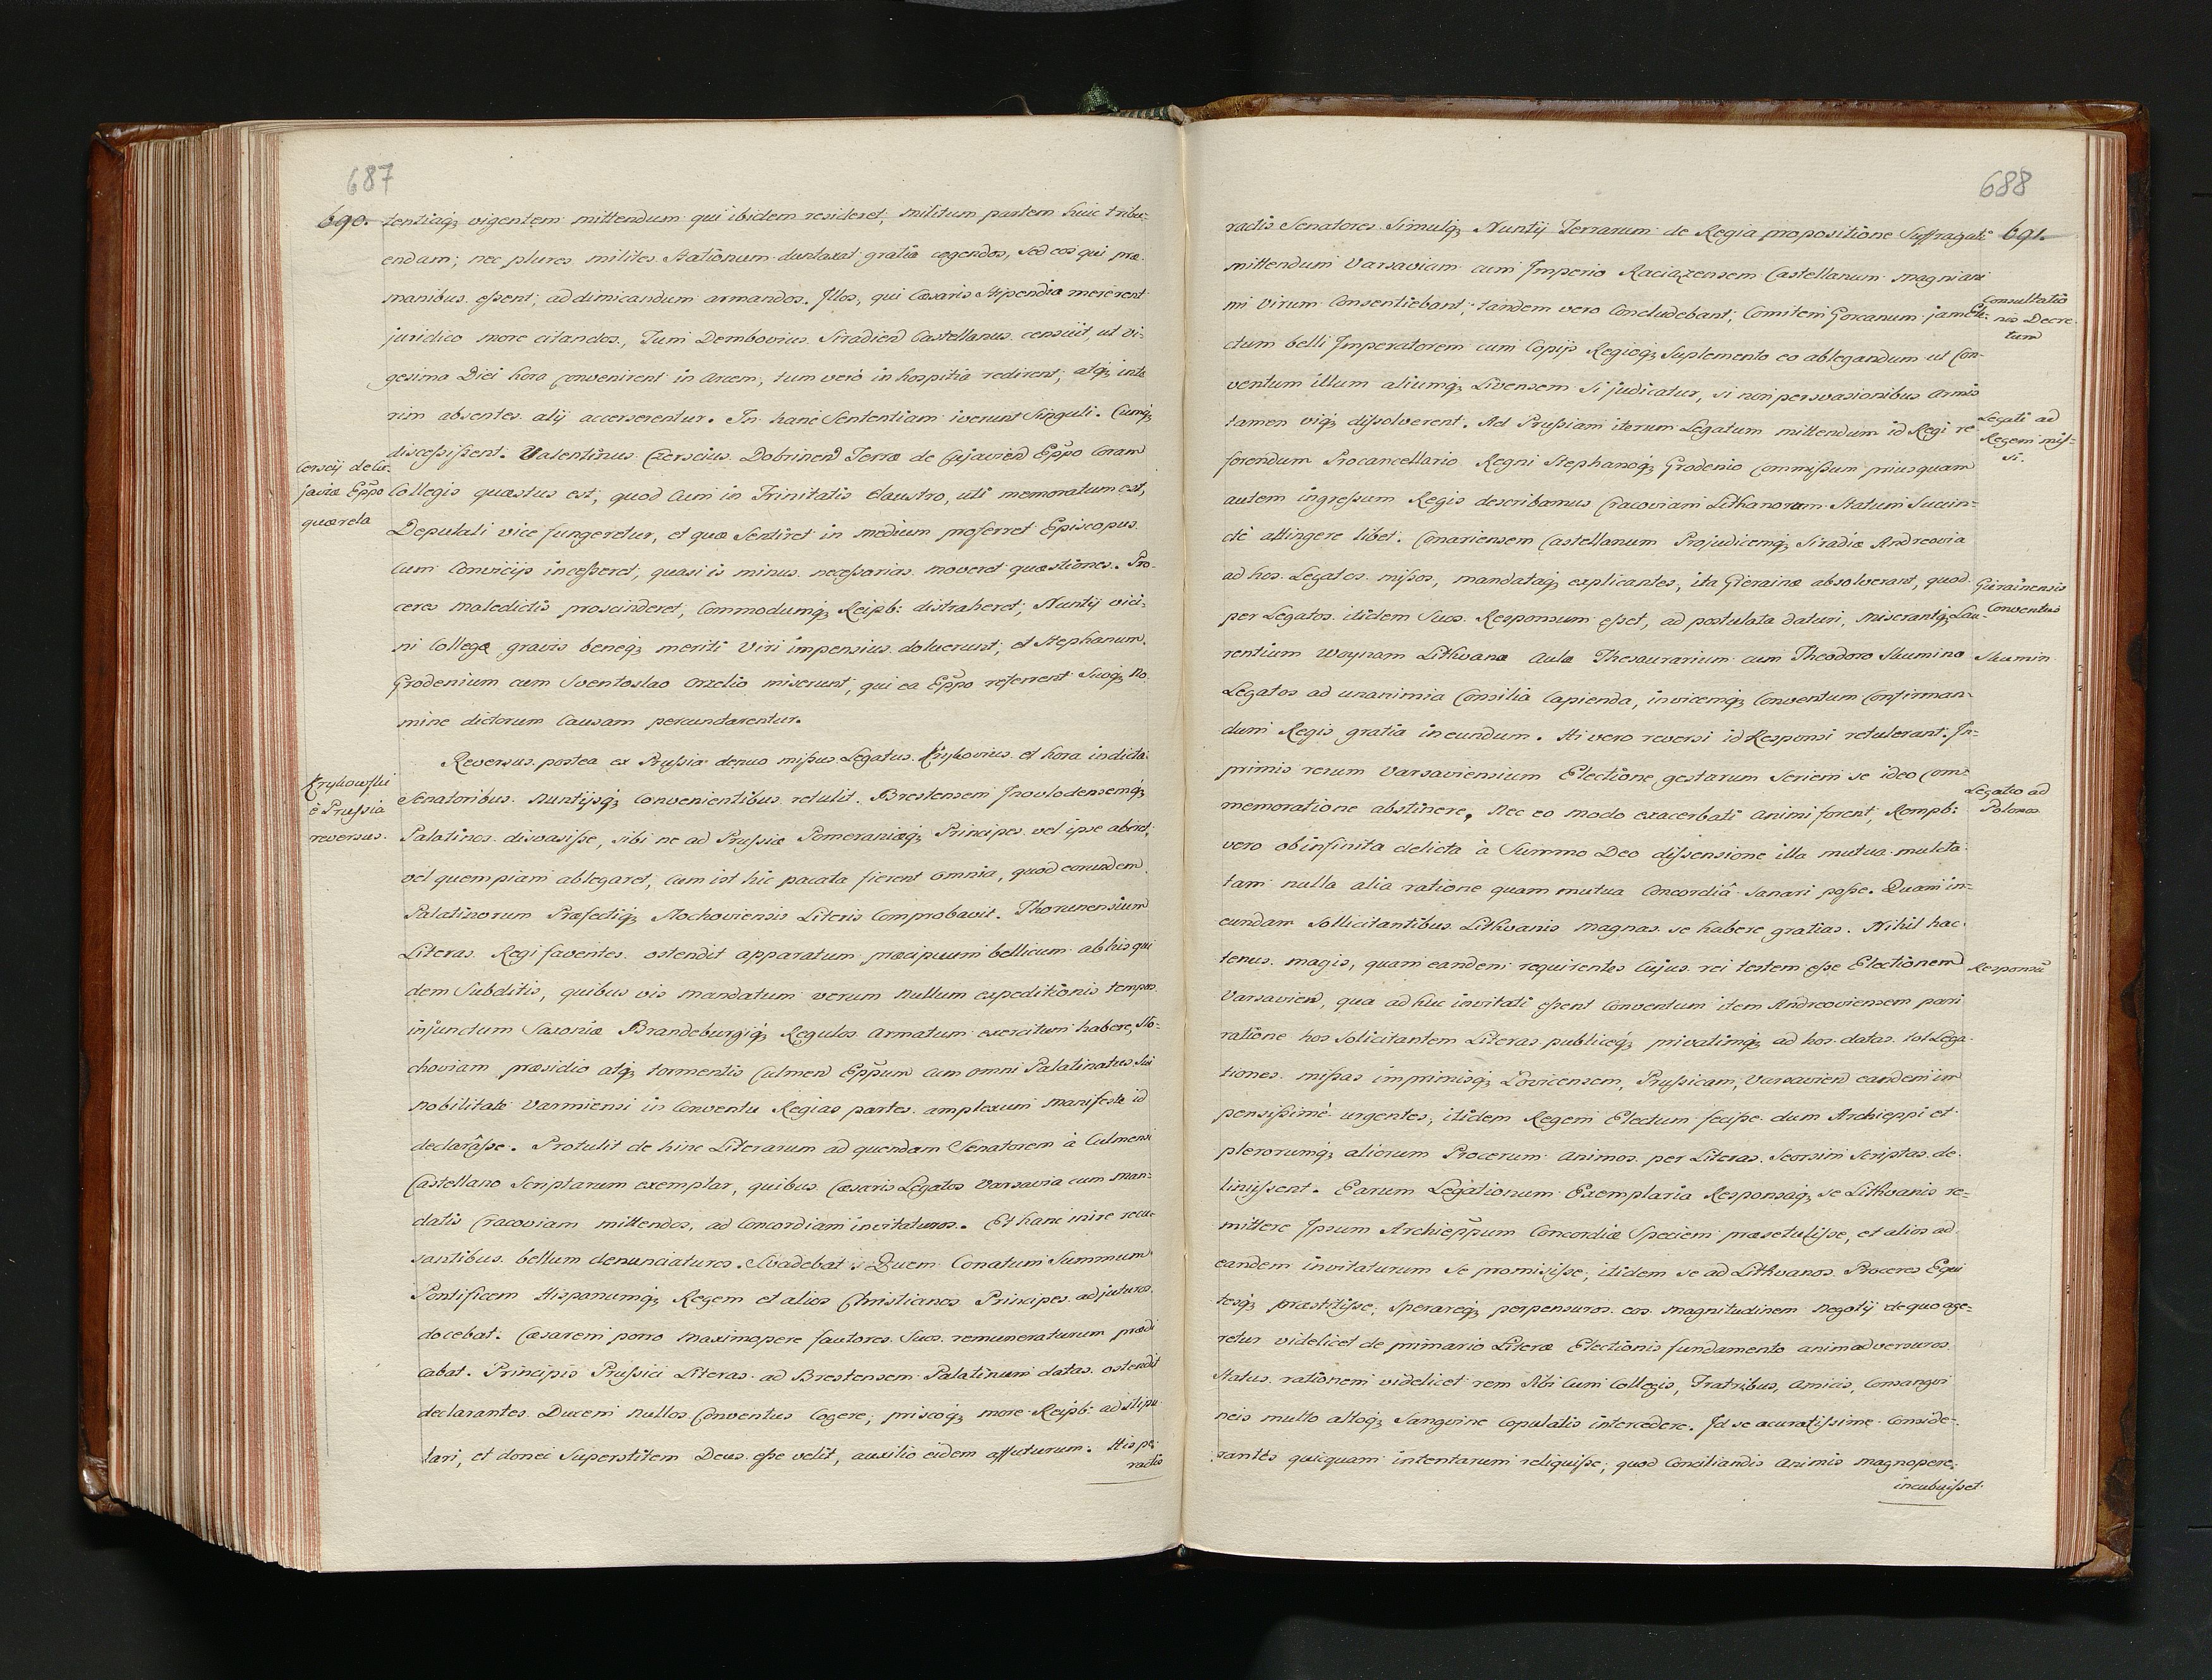 687
690. tentiaq; vigentem mittendum qui ibidem resideret, militum partem huic tribu-
endam; nec plures milites Stationum duntaxat gratia cogendos, sed eos qui præ
manibus essent, ad dimicandum armandos. Illos, qui Cæsaris Stipendia mererent
juridico more citandos, Tum Dembovius Siradien Castellanus censuit, ut vi-
gesima Diei hora convenirent in Arcem, tum verò in hospitia redirent, atq; inte
rim absentes alij accerserentur. In hanc Sententiam iverunt Singuli. Cumq;
discessissent. Valentinus Cærscius Dobrinen Terræ de Cujavien Eppo Coram
Cerscij de Cu-
javiæ Eppo
quærela
Collegis quæstus est, quod Cum in Trinitatis Claustro, uti memoratum est,
Deputati vice fungeretur, et quæ Sentiret in medium proferret Episcopus
Cum Convicijs incesseret, quasi is minus necessarias moveret quæstiones. Pro-
ceres maledictis proscinderet, Commodumq; Reipb: distraheret; Nuntij vici-
ni Collegæ gravis beneq; meriti Viri impensius doluerunt, et Stephanum
Grodenium cum Sventoslao Orzelio miserunt, qui ea Eppo referrent Suoq; No
mine dictorum Causam percunctarentur.
Reversus postea ex Prussia denuo missus Legatus Krykovius et hora indicta
Krykowski
è Prussia
reversus.
Senatoribus Nuntijsq; Convenientibus retulit. Brestensem Inovlodensemq;
Palatinos disvasisse, sibi ne ad Prussiæ Pomeraniæq; Principes vel ipse abiret;
vel quempiam ablegaret, Cum ist hic pacata fierent omnia, quod eorundem
Palatinorum Præfectiq; Stochoviensis Literis Comprobavit. Thorunensium
Literas Regi faventes ostendit apparatum præcipuum bellicum ab his qui
dem Subditis, quibus vis mandatum verum nullum expeditionis tempus
injunctum Saxoniæ Brandeburgiq; Regulos Armatum exercitum habere, Sto-
choviam præsidio atq; tormentis Culmen Eppum Cum omni Palatinatus Sui
Nobilitate Varmiensi in Conventu Regias partes amplexum manifeste id
declarâsse. Protulit de hinc Literarum ad quendam Senatorem à Culmensi
Castellano Scriptarum exemplar, quibus Cæsaris Legatos Varsavia cum man-
datis Cracoviam mittendos, ad Concordiam invitaturos. Et hanc inire recu-
santibus bellum denunciaturos. Svadebat Quem Conatum Summum
Pontificem Hispanumq; Regem et alios Christianos Principes adjuturos
docebat. Cæsarem porro maximopere fautores Suos remuneraturum prædi
cabat. Principis Prussici Literas ad Brestensem Palatinum datas ostendit
declarantes Ducem nullos Conventus Cogere, priscoq; more Reipb: adstipu
lari, et donec Superstitem Deus esse velit, auxilio eidem affuturum. His pe-
ractis
688
691.
ractis Senatores Simulq; Nuntij Terrarum de Regia propositione Suffragati
mittendum Varsaviam cum Imperio Raciazensem Castellanum magnani
mi Virum Consentiebant; tandem vero Concludebant, Comitem Gorcanum jam Ele-
Consultatio
nis Decre
tum
ctum belli Imperatorem cum Copijs Regioq; Suplemento eo ablegandum ut Con-
ventum illum aliumq; Livensem Si judicatur, si non persvasionibus armis
tamen viq; dissolverent. Ad Prussiam iterum Legatum mittendum id Regi re
Legati ad
Regem mis-
si.
ferendum Procancellario Regni Stephanoq; Grodenio Commissum priusquam
autem ingressum Regis describamus Cracoviam Lithanorum Statum Succin-
ctè attingere libet. Conariensem Castellanum Projudicemq; Siradiæ Andreovia
ad hos Legatos missos, mandataq; explicantes, ita Gierainæ absolverant, quod
Gierainensis
Conventus
per Legatos itidem Suos Responsum esset, ad postulata daturi, Miserantq; Lau-
rentium Woynam Lithvanæ Aulæ Thesaurarium cum Theodoro Skumino
Skumin
Legatos ad unanimia Consilia Capienda, invicemq; Conventum Confirman-
dum Regis gratia ineundum. Hi vero reversi id Responsi retulerant. In-
primis rerum Varsaviensium Electione gestarum Seriem se ideo Com-
memoratione abstinere, Nec eo modo exacerbati animi forent, Rempb:
Legatio ad
Polonos
vero ob infinita delicta à Summo Deo dissensione illa mutua mulcta-
tam nulla alia ratione quam mutua Concordiâ Sanari posse. Quam in-
eundam Sollicitantibus Lithvanis Magnas se habere gratias. Nihil hac-
tenus magis, quam eandem requirentes Cujus rei testem esse Electionem
Responsũ
Varsavien, qua ad huc invitati essent Conventum item Andreoviensem pari
ratione hos Solicitantem Literas publiceq; privatimq; ad hos datas tot Lega-
tiones missas imprimisq; Lovicensem, Prussicam, Varsavien eandem im
pensissimè urgentes, itidem Regem Electum fecisse dum Archieppi et
plerorumq; aliorum Procerum Animos per Literas Seorsim Scriptas de-
linissent. Earum Legationum Exemplaria Responsaq; se Lithvanis re-
mittere Ipsum Archieppum Concordiæ Speciem præsetulisse, et alios ad
eandem invitaturum se promisisse, itidem se ad Lithvanos Proceres Equi
tesq; præstitisse, Sperareq; perpensuros eos magnitudinem Negotij de quo age-
retur videlicet de primario Literæ Electionis fundamento animadversuros
Status rationem videlicet rem Sibi Cum Collegis, Fratribus, Amicis, Consangvi
neis multo altoq; Sangvine Copulatis intercedere. Id se acuratissime Conside-
rantes quicquam intentarum reliquisse, quod Conciliandis Animis magnopere
incubuisset